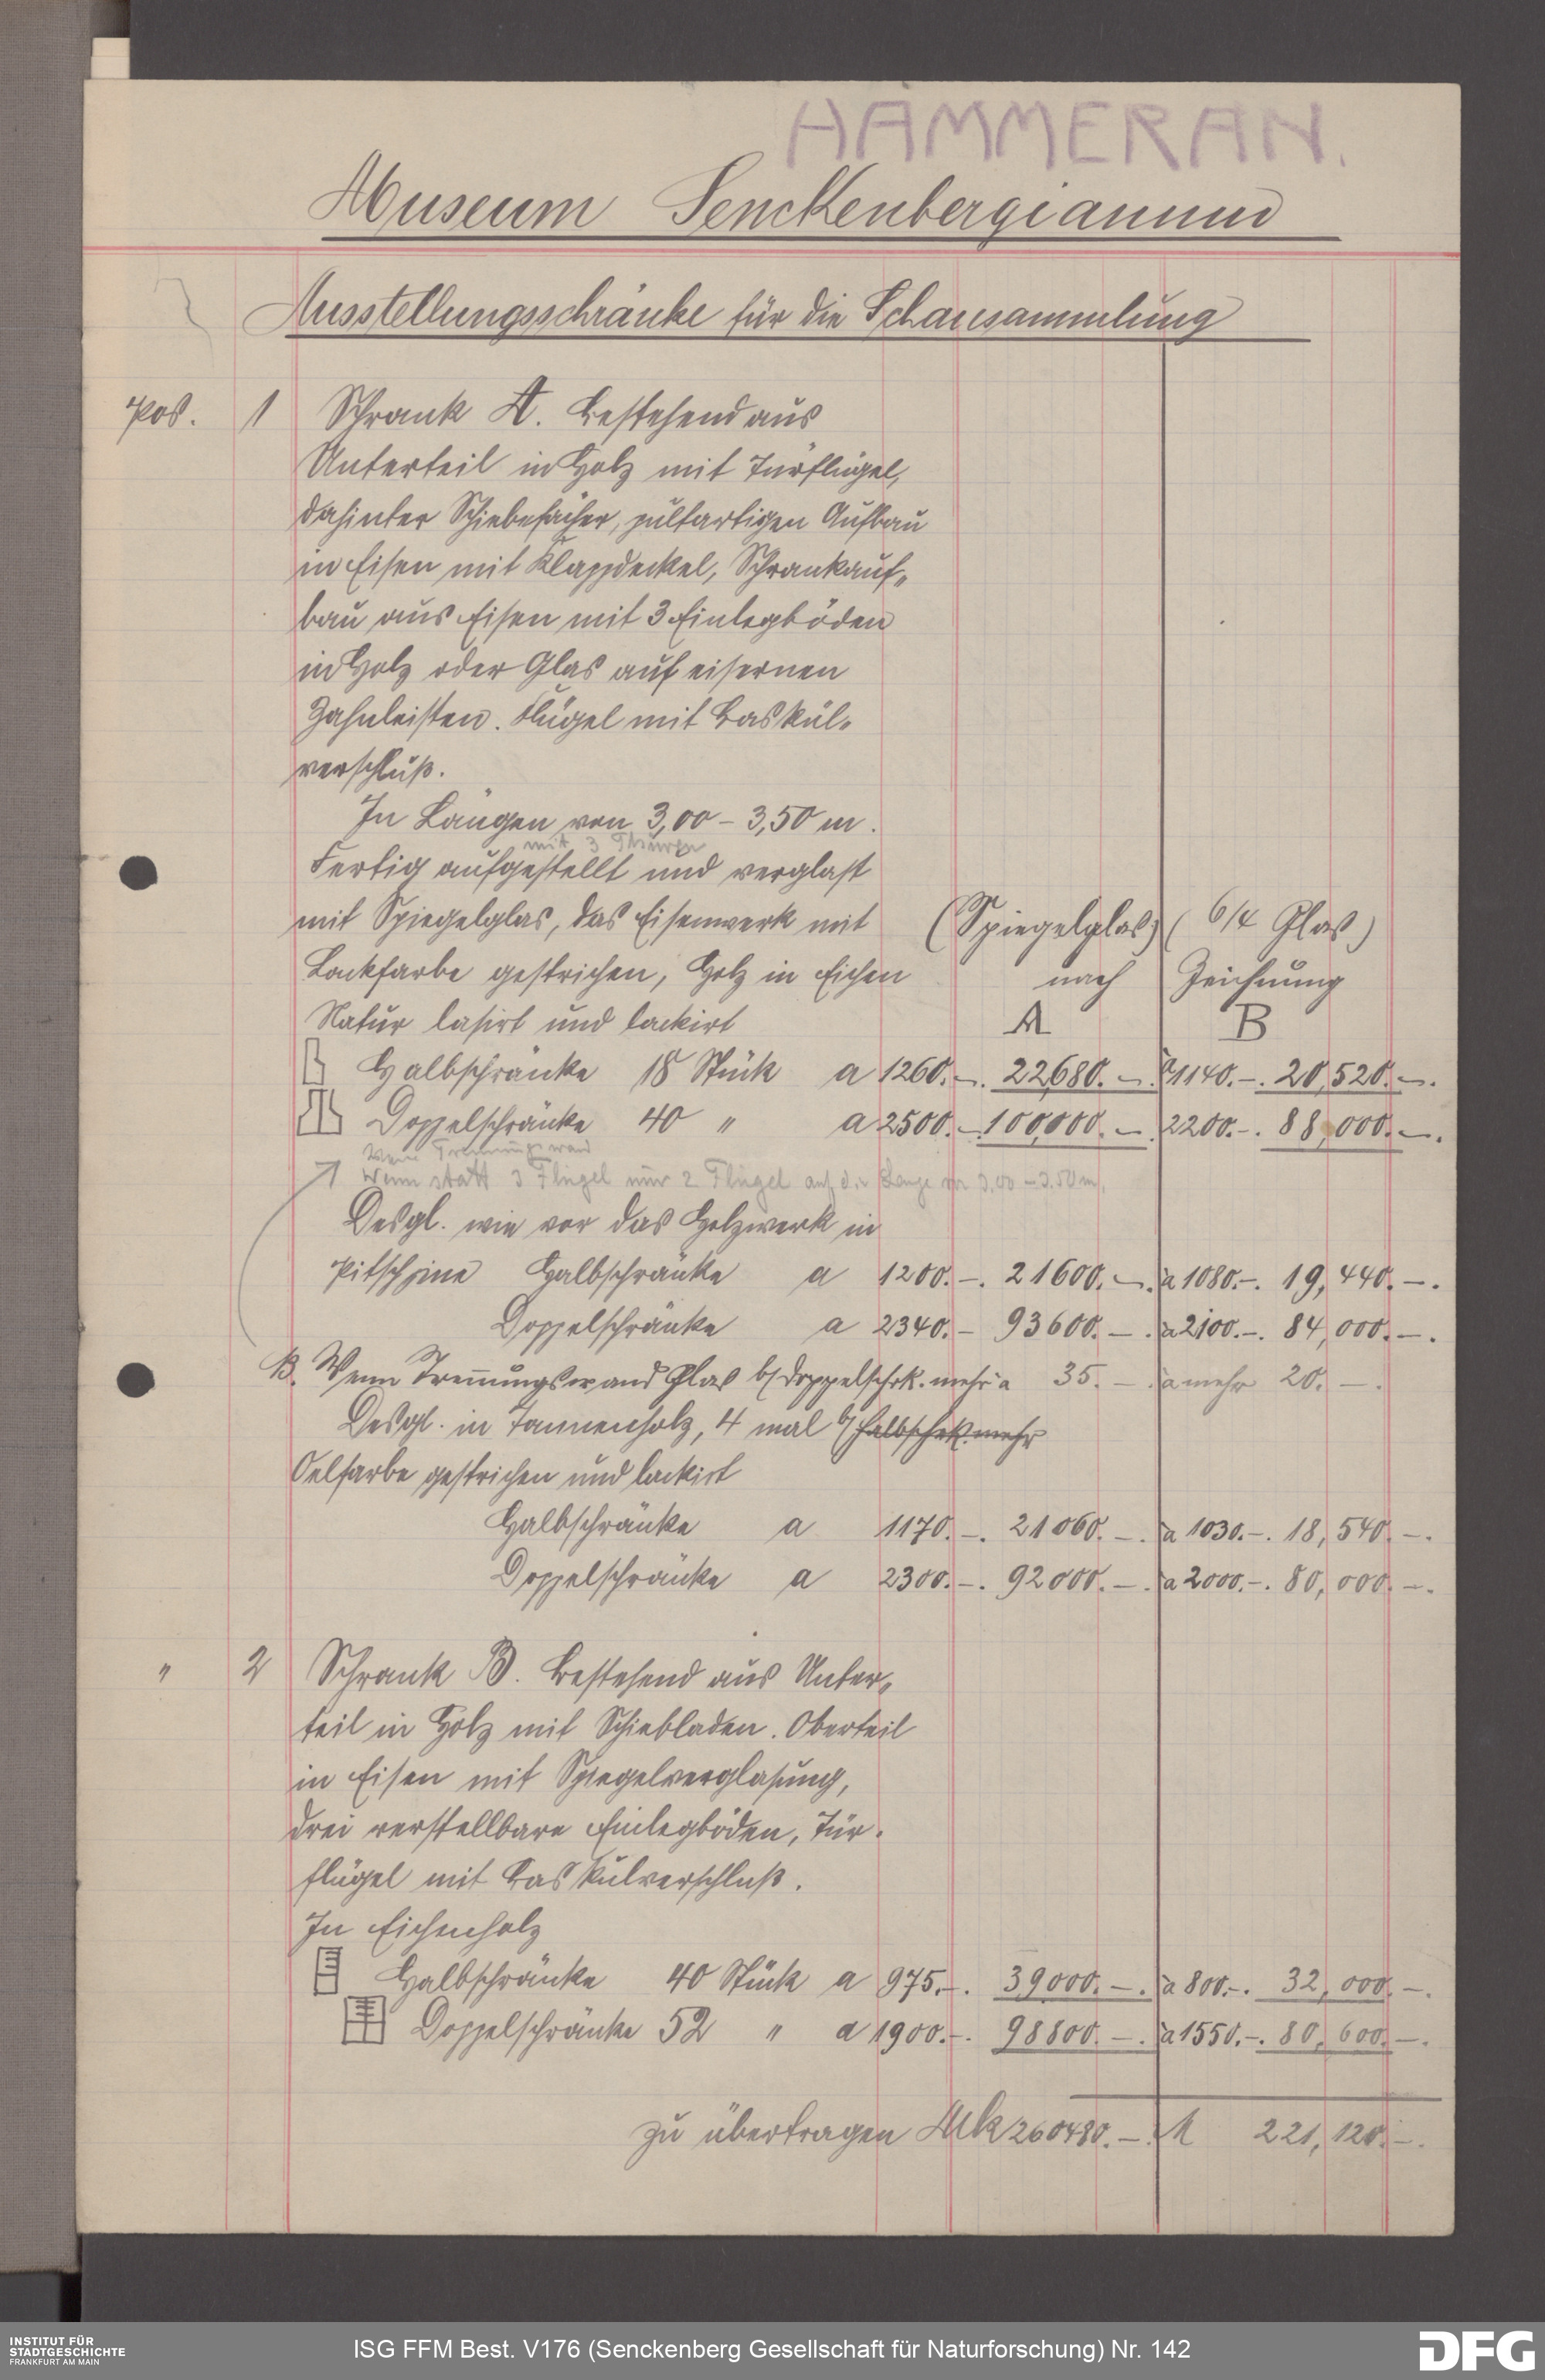 HAMMERAN.
Museum Senckenbergianum
Ausstellungsschränke für die Schausammlung
Pos. 1 Schrank A. Bestehend aus
Unterteil in Holz mit Türflügel,
dahinter Schiebefächer, pultartigen Aufbau
in Eisen mit Klappdeckel, Schrankauf-
bau aus Eisen mit 3 Einlegböden
in Holz oder Glas auf eisernen
Zahnleisten. Flügel mit Baskül-
verschluß.
In Längen von 3,00 – 3,50 m.
mit 3 Thüren
Fertig aufgestellt und verglast
mit Spiegelglas, das Eisenwerk mit (Spiegelglas) (6/4 Glas)
Lackfarbe gestrichen, Holz in Eichen nach Zeichnung
Natur lasirt und lackirt A B
Halbschränke 18 Stück a 1260.–. 22680.–. à 1140.–. 20,520.–.
Doppelschränke 40 " a 2500.– 100,000.–. 2200.–. 88,000.–.
Trennungswand
Wenn statt 3 Flügel nur 2 Flügel auf die Länge von 3,00 – 3.50 m,
Desgl. wie vor das Holzwerk in
Pitschpine Halbschränke a 1200.–. 21600.–. à 1080.–. 19,440.–.
Doppelschränke a 2340.– 93600.–. à 2100.–. 84,000.–.
Wenn Trennungswand Glas b/ Doppelschrk. mehr a 35.–. à mehr 20.–.
Desgl. in Tannenholz, 4 mal b/ Halbschrk. mehr
Oelfarbe gestrichen und lackirt
Halbschränke a 1170.–. 21060.–. à 1030.–. 18,540.–.
Doppelschränke a 2300.–. 92000.–. à 2000.–. 80,000.–.
" 2 Schrank B. Bestehend aus Unter-
teil in Holz mit Schiebladen. Oberteil
in Eisen mit Spiegelverglasung,
drei verstellbare Einlegböden, Tür-
flügel mit Baskülverschluß.
In Eichenholz
Halbschränke 40 Stück a 975.–. 39000.–. à 800.–. 32,000.–.
Doppelschränke 52 " a 1900.–. 98800.–. à 1550.–. 80,600.–.
zu übertragen Mk 260480.–. M 221,120.–.
INSTITUT FÜR
STADTGESCHICHTE
FRANKFURT AM MAIN
ISG FFM Best. V176 (Senckenberg Gesellschaft für Naturforschung) Nr. 142
DFG